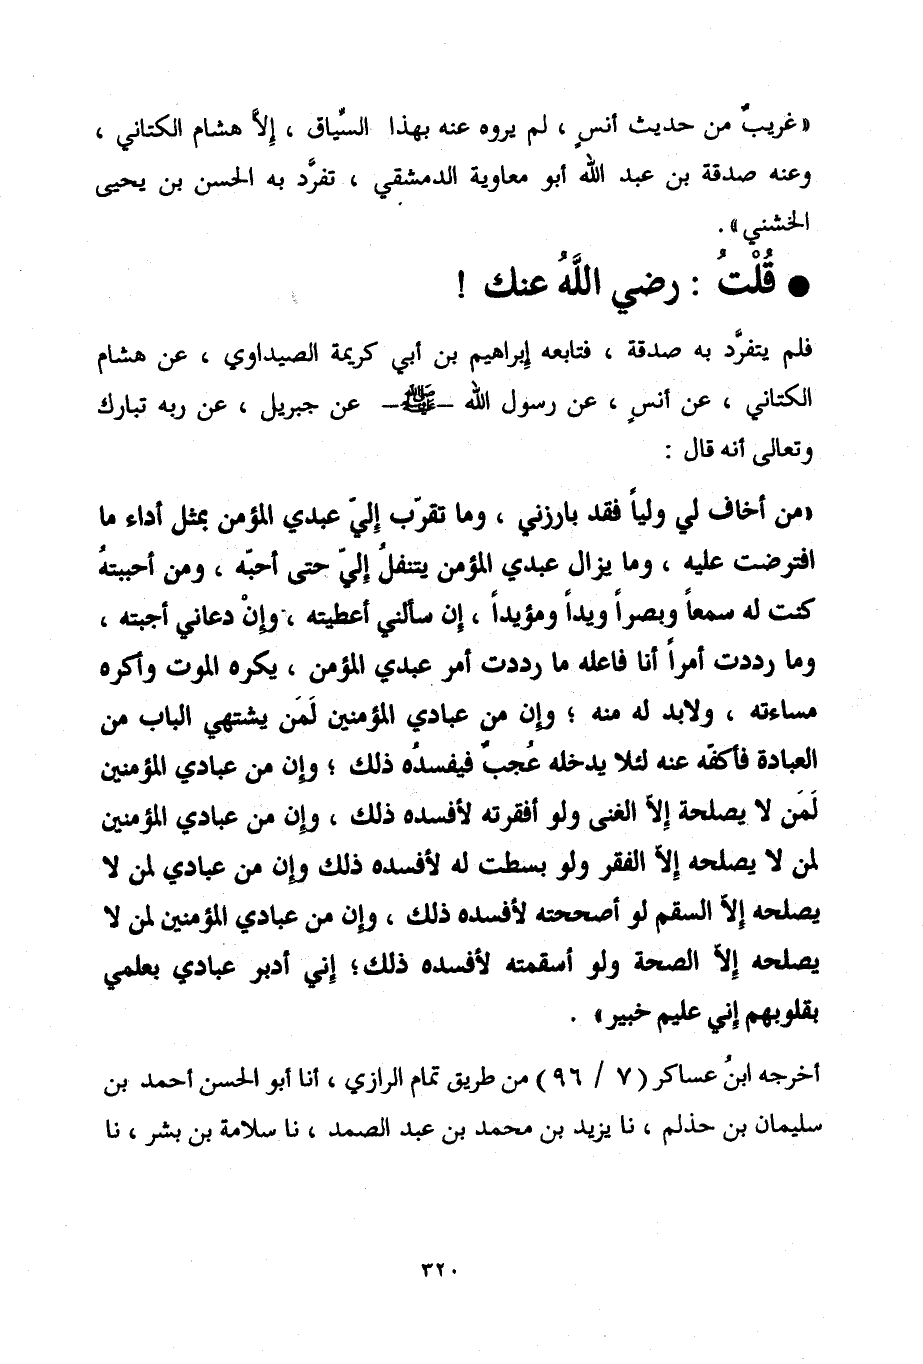 «غريبٌ من حديث أنسٍ ، لم يروه عنه بهذا السِّياق ، إلاَّ هشام الكتاني ،
وعنه صدقة بن عبد الله أبو معاوية الدمشقي ، تفرَّد به الحسن بن يحيى
الخشني» .
● قُلْتُ : رضي اللَّهُ عنك !
فلم يتفرَّد به صدقة ، فتابعه إبراهيم بن أبي كريمة الصيداوي ، عن هشام
الكتاني ، عن أنسٍ ، عن رسول الله -ﷺ- عن جبريل ، عن ربه تبارك
وتعالى أنه قال :
«من أخاف لي ولياً فقد بارزني ، وما تقرّب إليّ عبدي المؤمن بمثل أداء ما
افترضت عليه ، وما يزال عبدي المؤمن يتنفلُ إليّ حتى أحبّه ، ومن أحببتهُ
كنت له سمعاً وبصراً ويداً ومؤيداً ، إن سألني أعطيته ، وإنْ دعاني أجبته ،
وما رددت أمراً أنا فاعله ما رددت أمر عبدي المؤمن ، يكره الموت وأكره
مساءته ، ولابد له منه ؛ وإن من عبادي المؤمنين لَمَن يشتهي الباب من
العبادة فأكفّه عنه لئلا يدخله عُجبٌ فيفسدُه ذلك ؛ وإن من عبادي المؤمنين
لَمَن لا يصلحة إلاّ الغنى ولو أفقرته لأفسده ذلك ، وإن من عبادي المؤمنين
لمن لا يصلحه إلاّ الفقر ولو بسطت له لأفسده ذلك وإن من عبادي لمن لا
يصلحه إلاّ السقم لو أصححته لأفسده ذلك ، وإن من عبادي المؤمنين لمن لا
يصلحه إلاّ الصحة ولو أسقمته لأفسده ذلك؛ إني أدبر عبادي بعلمي
بقلوبهم إني عليم خبير» .
أخرجه ابنُ عساكر (٧ / ٩٦) من طريق تمام الرازي ، أنا أبو الحسن أحمد بن
سليمان بن حذلم ، نا يزيد بن محمد بن عبد الصمد ، نا سلامة بن بشر ، نا
٣٢٠